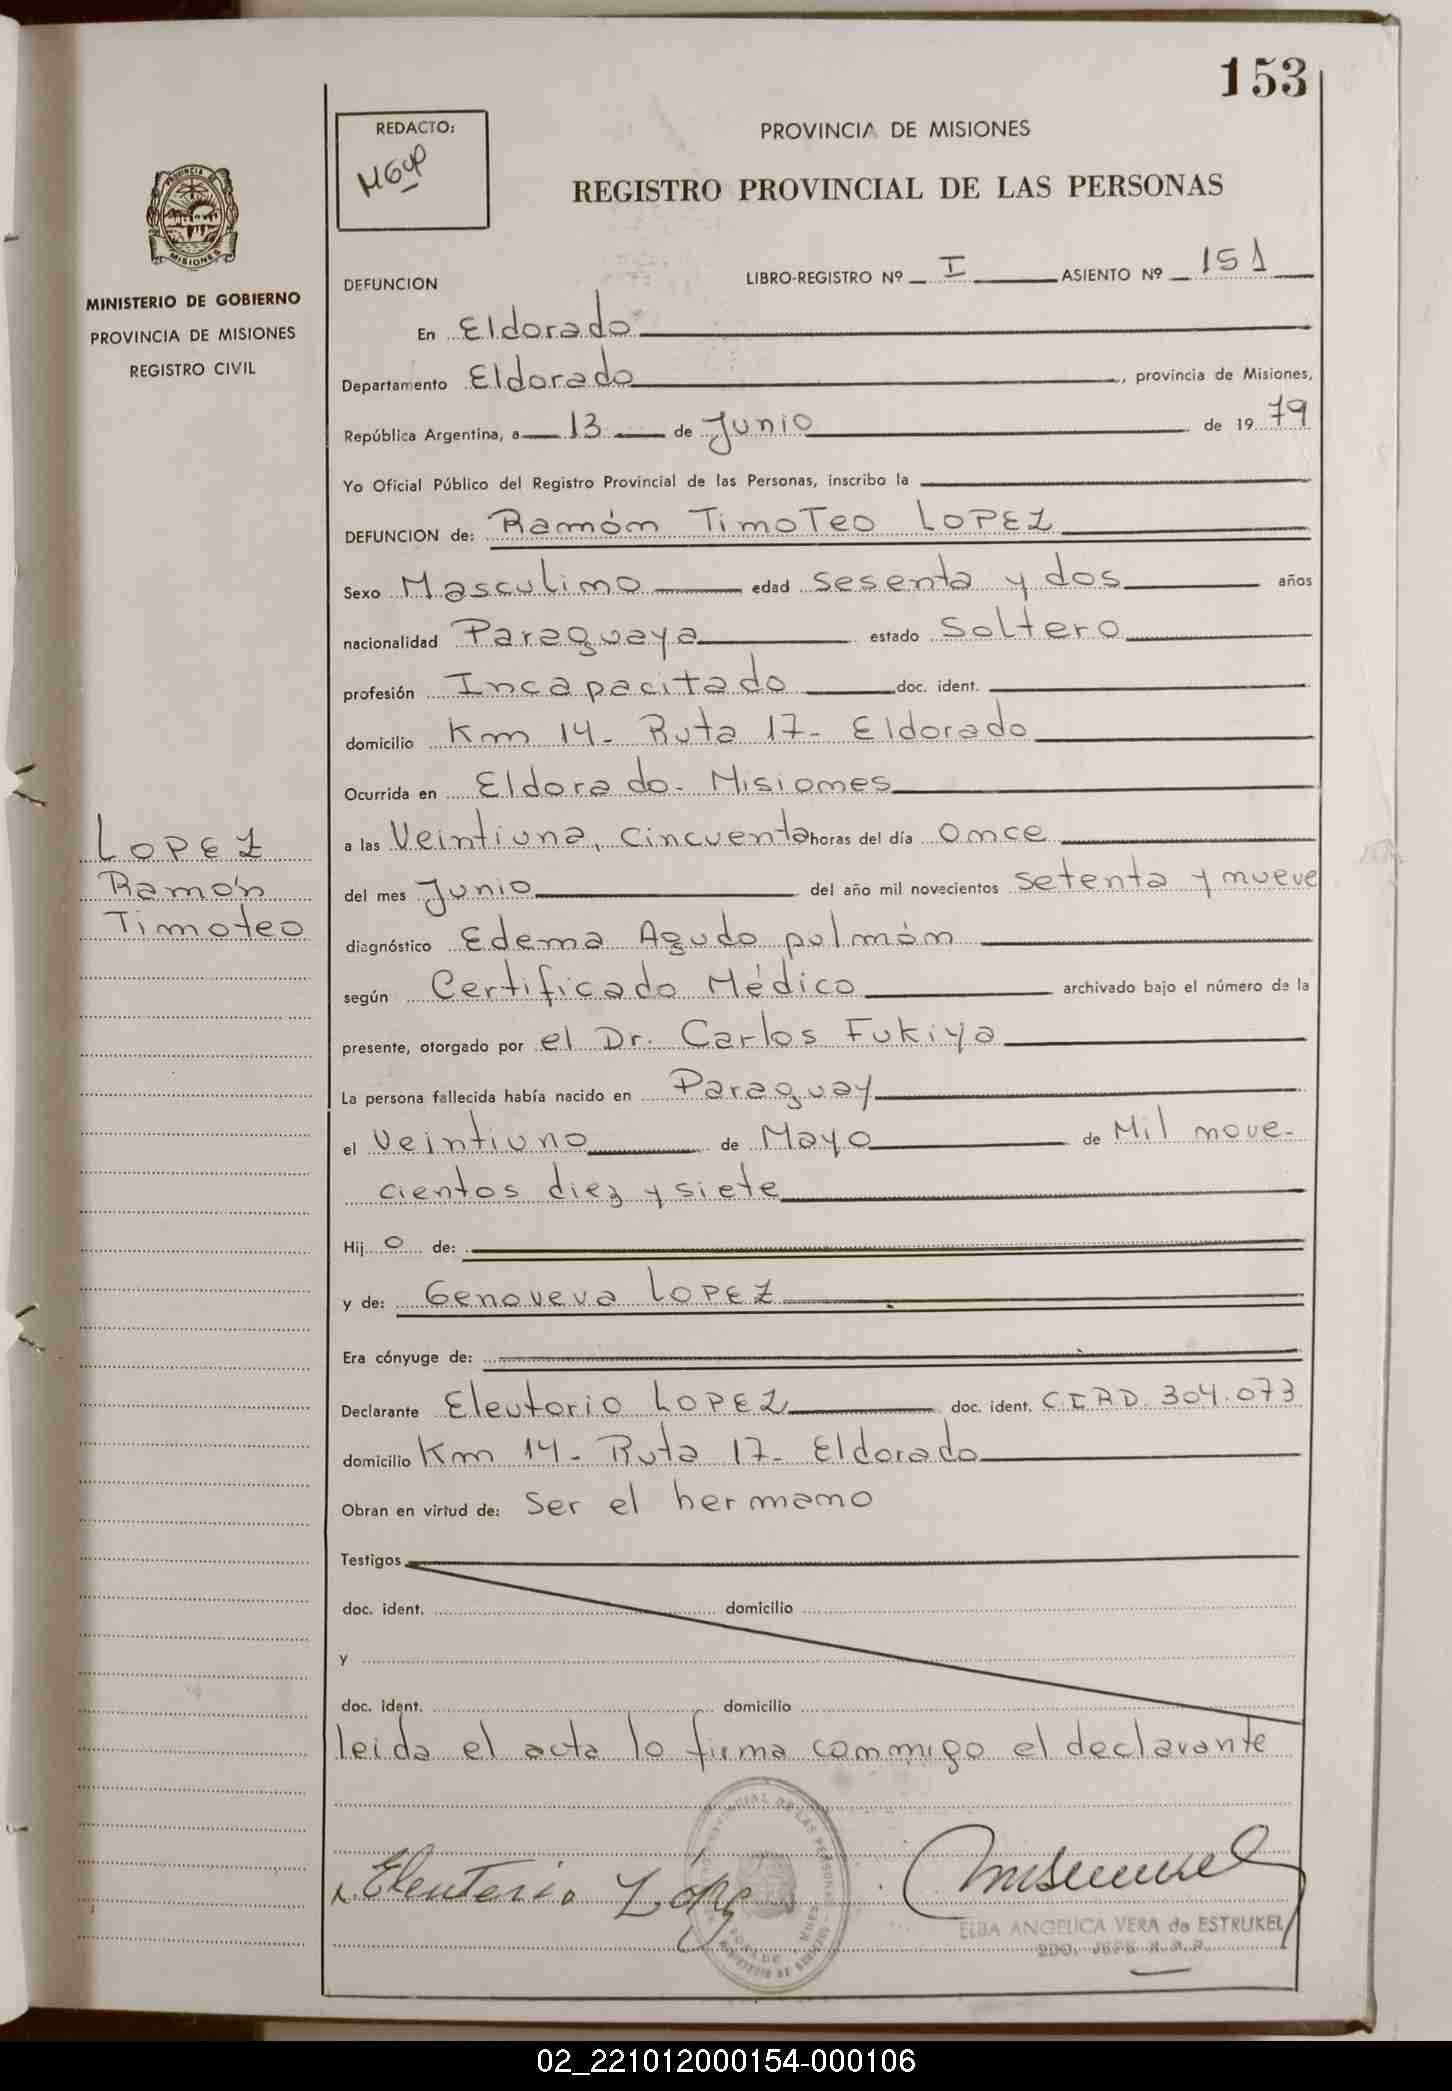 153
REDACTO:
PROVINCIA DE MISIONES
REGISTRO PROVINCIAL DE LAS PERSONAS
PROVINCIA DE
MISIONES
MINISTERIO DE GOBIERNO
PROVINCIA DE MISIONES
REGISTRO CIVIL
DEFUNCION LIBRO-REGISTRO Nº I ASIENTO Nº 151
En Eldorado
Departamento Eldorado, provincia de Misiones,
República Argentina, a 13 de Junio de 1979
Yo Oficial Público del Registro Provincial de las Personas, inscribo la
DEFUNCION de: Ramón Timoteo LOPEZ
Sexo Masculino edad sesenta y dos años
nacionalidad Paraguaya estado Soltero
profesión Incapacitado doc. ident.
domicilio Km 14- Ruta 17- Eldorado
Ocurrida en Eldorado- Misiones
a las Veintiuna, cincuenta horas del día once
del mes Junio del año mil novecientos setenta y nueve
diagnóstico Edema Agudo pulmón
según Certificado Médico archivado bajo el número de la
presente, otorgado por el Dr. Carlos Fukiya
La persona fallecida había nacido en Paraguay
el Veintiuno de Mayo de Mil nove-
cientos diez y siete
Hijo de:
y de: Genoveva LOPEZ
Era cónyuge de:
Declarante Eleutorio LOPEZ doc. ident. C.I.R.D. 304.073
domicilio Km 14- Ruta 17- Eldorado
Obran en virtud de: Ser el hermano
Testigos
doc. ident. domicilio
y
doc. ident. domicilio
leida el acta lo firma conmigo el declarante
LOPEZ
Ramón
Timoteo
Eleuterio López
ELBA ANGELICA VERA de ESTRUKEL
2DO. JEFE R.P.P.
02_221012000154-000106